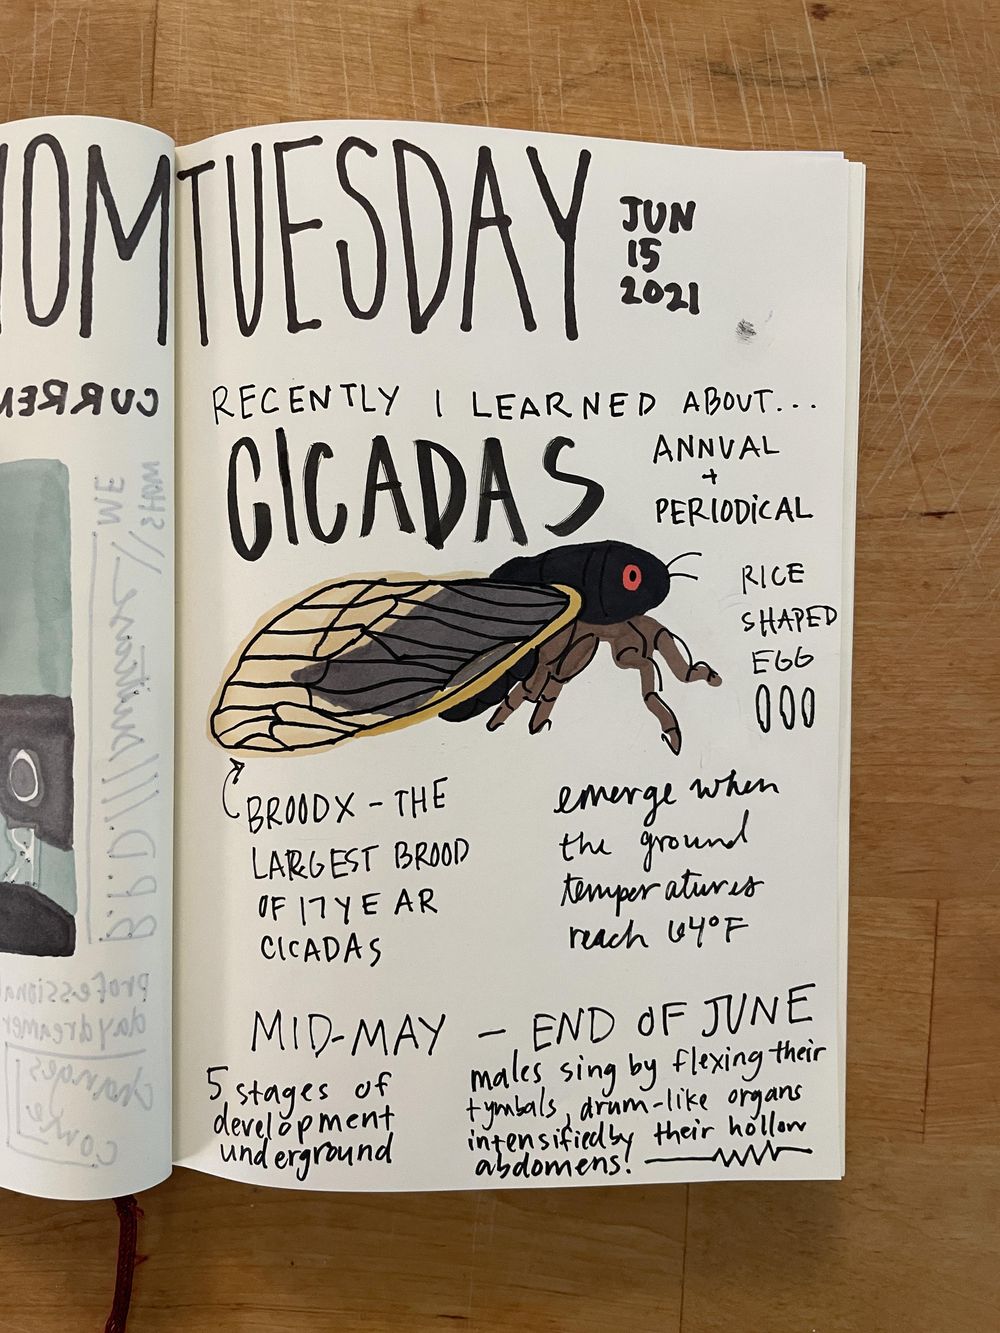 TUESDAY
JUN
15
2021
RECENTLY I LEARNED ABOUT...
CICADAS
ANNUAL
+
PERIODICAL
RICE
SHAPED
EGG
BROODX - THE
LARGEST BROOD
OF 17 YEAR
CICADAS
emerge when
the ground
temperatures
reach 64°F
MID-MAY - END OF JUNE
5 stages of
development
underground
males sing by flexing their
tymbals, drum-like organs
intensified by their hollow
abdomens!
OM
CURREN
WE
SHOW
B.P.D.///
professional
daydreamer
changes